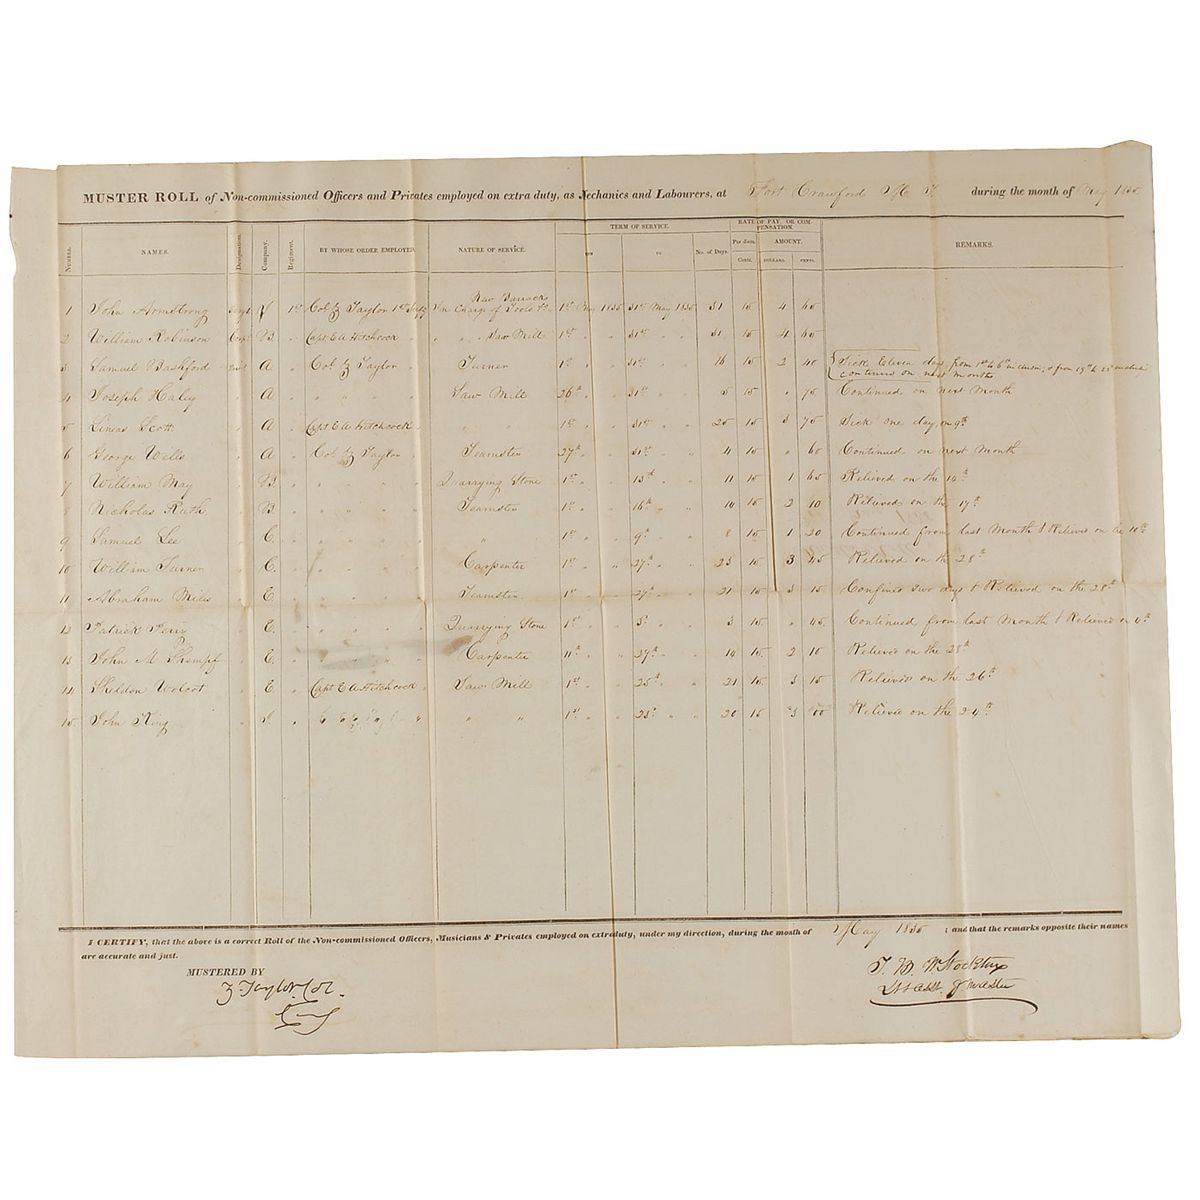 MUSTER ROLL of Non-commissioned Officers and Privates employed on extra duty, as Mechanics and Labourers, at Fort Crawford M. T. during the month of May 1835
NUMBER. NAMES. Designation. Company. Regiment. BY WHOSE ORDER EMPLOYED. NATURE OF SERVICE. TERM OF SERVICE. RATE OF PAY, OR COMPENSATION. REMARKS.
TO No. of Days. Per diem. AMOUNT.
Cents. DOLLARS. CENTS.
1 John Armstrong Sergt. 1st Col Z Taylor 1st Infy New Barracks In Charge of Tools &c. 1st May 1835 31st May 1835 31 15 4 65
2 William Robinson Corpl. B " Capt. E A Hitchcock " " Saw Mill 1st " " 31st " " 31 15 4 65
3 Samuel Bashford A " Col. Z Taylor " Turner 1st " " 31st " " 16 15 2 40 Sick Eleven days from 1st to 6th inclusive; & from 19th to 23d inclusive continued on next month
4 Joseph Haley " A " " " " " Saw Mill 26th " " 31st " " 5 15 " 75 Continued on next Month
5 Lineas Scott " A " Capt E A Hitchcock " " " 1st " " 31st " " 25 15 3 75 Sick one day, on 9th
6 George Wells " A " Col. Z Taylor " Teamster 27th " " 31st " " 4 15 " 60 Continued on next Month
7 William May " B " " " " " Quarrying Stone 1st " " 13th " " 11 15 1 65 Relieved on the 14th
8 Nicholas Ruth " B " " " " " Teamster 1st " " 16th " " 14 15 2 10 Relieved on the 17th
9 Samuel Lee " E. " " " " " " 1st " " 9th " " 8 15 1 20 Continued from last Month & Relieved on the 10th
10 William Turner " E. " " " " " Carpenter 1st " " 27th " " 23 15 3 45 Relieved on the 28th
11 Abraham Miles " E. " " " " " Teamster 1st " " 27th " " 21 15 3 15 Confined two days & Relieved on the 28th
12 Patrick Ferry " E. " " " " " Quarrying Stone 1st " " 3d " " 3 15 " 45 Continued from last Month & Relieved on 4th
13 John M Shempf " E. " " " " " Carpenter 11th " " 27th " " 14 15 2 10 Relieved on the 28th
14 Sheldon Wolcot " E " Capt E A Hitchcock " Saw Mill 1st " " 25th " " 21 15 3 15 Relieved on the 26th
15 John King " " " " 1st " " 23d " " 20 15 3 00 Relieved on the 24th
I CERTIFY, that the above is a correct Roll of the Non-commissioned Officers, Musicians & Privates employed on extra duty, under my direction, during the month of May 1835 ; and that the remarks opposite their names
are accurate and just.
MUSTERED BY
Z. Taylor Col.
T. B. W Stockton
Lt & Asst. Q Master